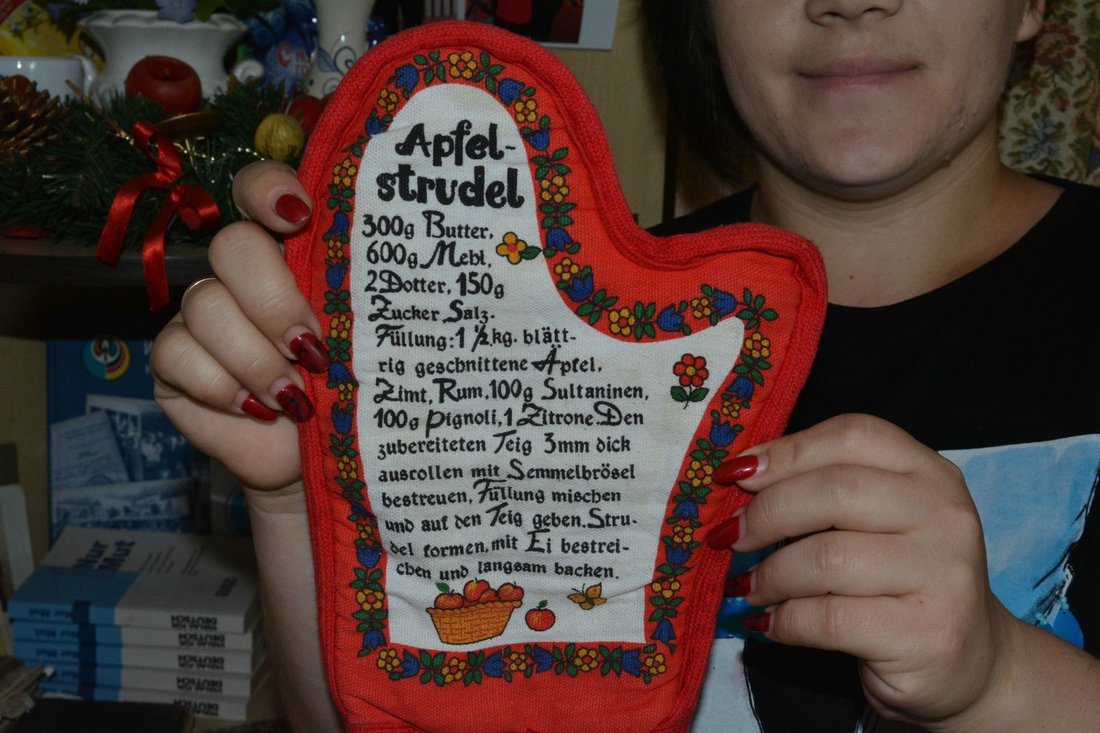 Apfel-
strudel
300g Butter,
600g Mehl,
2 Dotter, 150g
Zucker, Salz.
Füllung: 1 ½ kg. blätt-
rig geschnittene Äpfel,
Zimt, Rum, 100g Sultaninen,
100g Pignoli, 1 Zitrone. Den
zubereiteten Teig 3mm dick
ausrollen mit Semmelbrösel
bestreuen, Füllung mischen
und auf den Teig geben. Stru-
del formen, mit Ei bestrei-
chen und langsam backen.
Nur
Mut